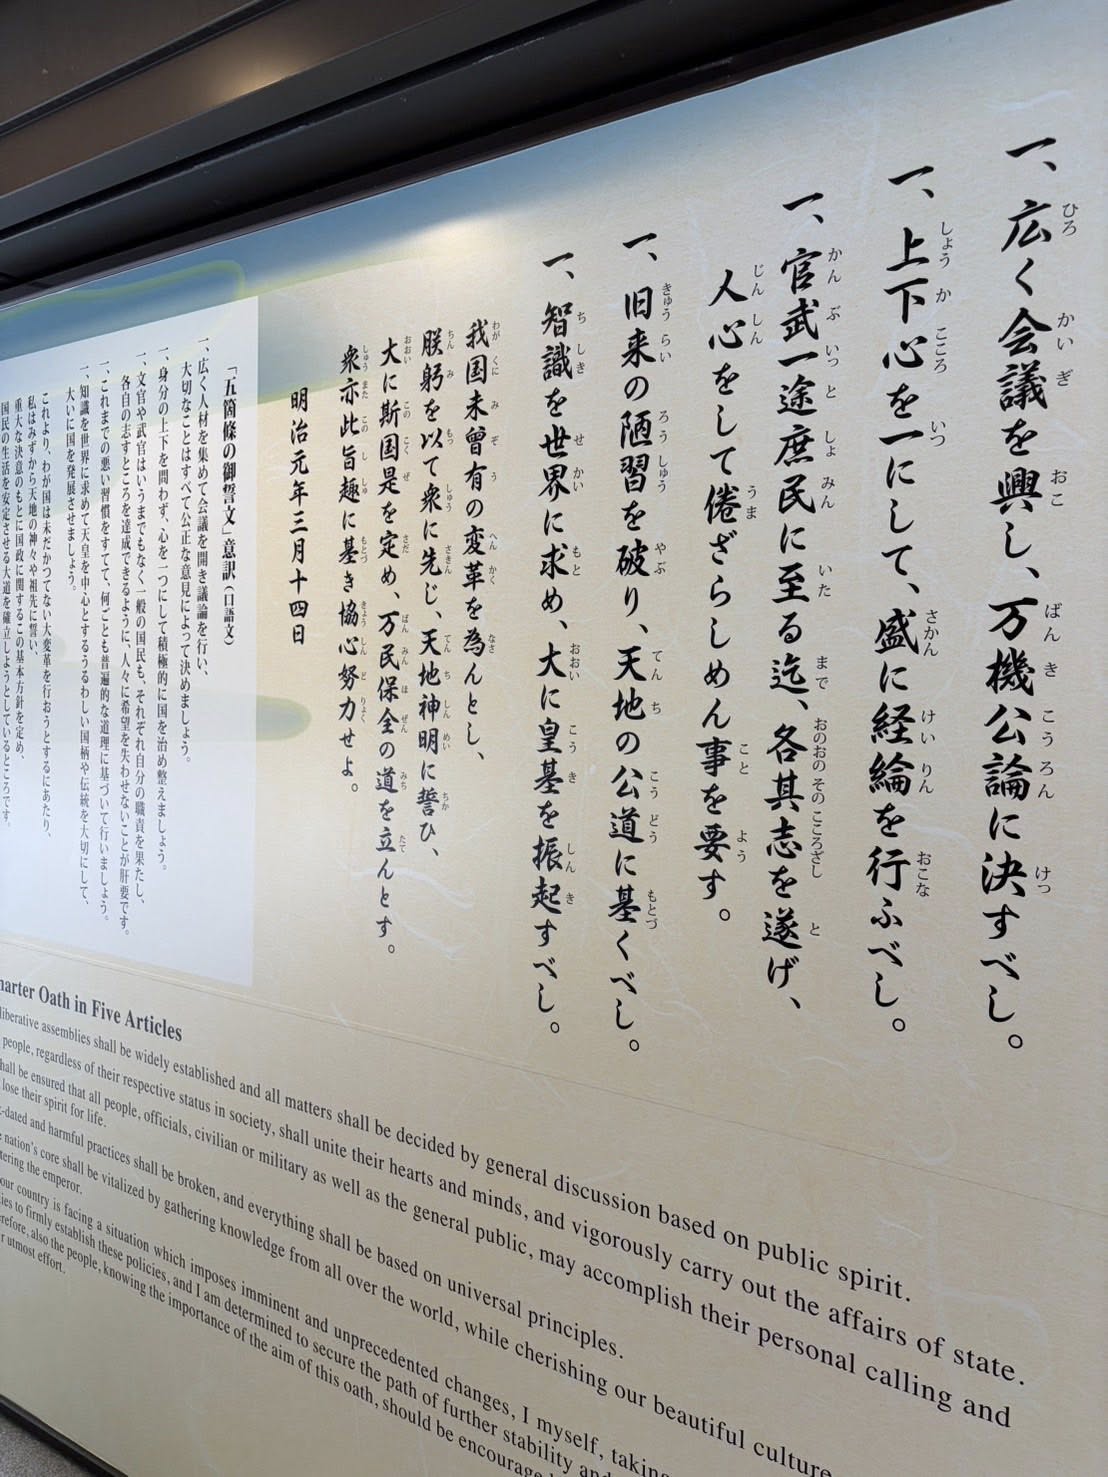 一、広く会議を興し、万機公論に決すべし。
一、上下心を一にして、盛に経綸を行ふべし。
一、官武一途庶民に至る迄、各其志を遂げ、
人心をして倦ざらしめん事を要す。
一、旧来の陋習を破り、天地の公道に基くべし。
一、智識を世界に求め、大に皇基を振起すべし。
我国未曾有の変革を為んとし、
朕躬を以て衆に先じ、天地神明に誓ひ、
大に斯国是を定め、万民保全の道を立んとす。
衆亦此旨趣に基き協心努力せよ。
明治元年三月十四日
「五箇條の御誓文」意訳(口語文)
一、広く人材を集めて会議を開き議論を行い、
大切なことはすべて公正な意見によって決めましょう。
一、身分の上下を問わず、心を一つにして積極的に国を治め整えましょう。
一、文官や武官はいうまでもなく一般の国民も、それぞれ自分の職責を果たし、
各自の志すところを達成できるように、人々に希望を失わせないことが肝要です。
一、これまでの悪い習慣をすてて、何ごとも普遍的な道理に基づいて行いましょう。
一、知識を世界に求めて天皇を中心とするうるわしい国柄や伝統を大切にして、
大いに国を発展させましょう。
これより、わが国は未だかつてない大変革を行おうとするにあたり、
私はみずから天地の神々や祖先に誓い、
重大な決意のもとに国政に関するこの基本方針を定め、
国民の生活を安定させる大道を確立しようとしているところです。
Oath in Five Articles
assemblies shall be widely established and all matters shall be decided by general discussion based on public spirit.
people, regardless of their respective status in society, shall unite their hearts and minds, and vigorously carry out the affairs of state.
shall be ensured that all people, officials, civilian or military as well as the general public, may accomplish their personal calling and
lose their spirit for life.
-dated and harmful practices shall be broken, and everything shall be based on universal principles.
nation's core shall be vitalized by gathering knowledge from all over the world, while cherishing our beautiful culture
the emperor.
our country is facing a situation which imposes imminent and unprecedented changes, I myself, taking
to firmly establish these policies, and I am determined to secure the path of further stability and
also the people, knowing the importance of the aim of this oath, should be encouraged
utmost effort.